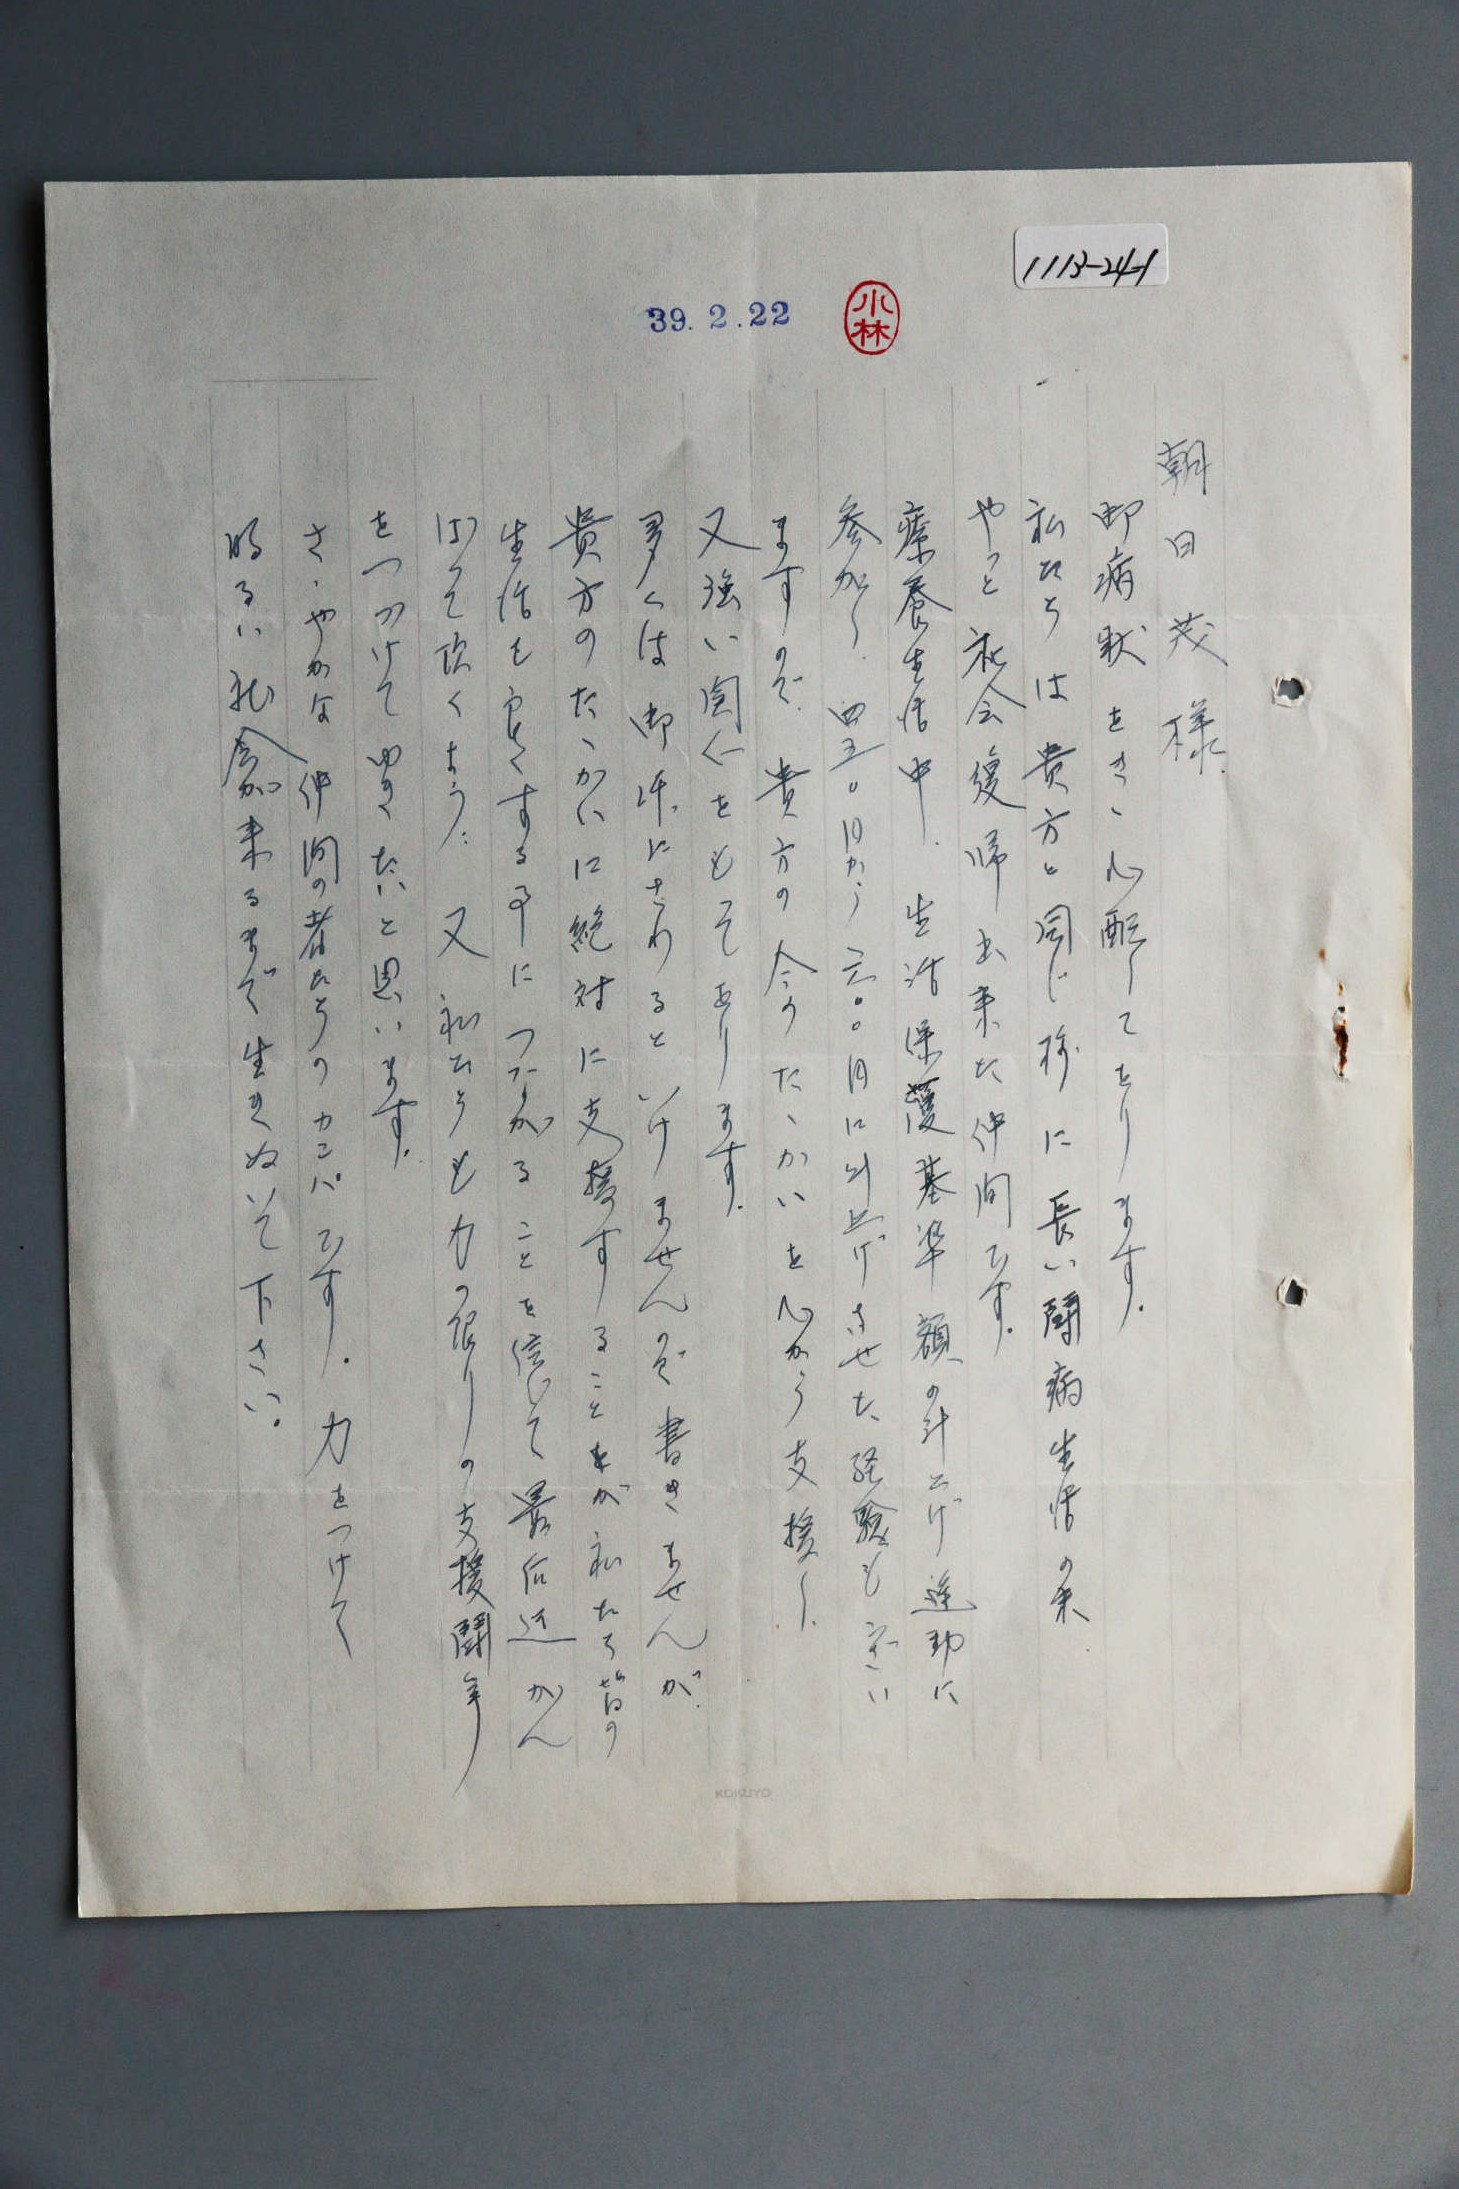 1113-24-1
小林
39.2.22
朝日茂様
御病状をきゝ心配してをります。
私たちは貴方と同じ様に長い闘病生活の末
やっと社会復帰出来た仲間です。
療養生活中、生活保護基準額の引上げ運動に
参加し、四五〇円から六〇〇円に引上げさせた経験もござい
ますので、貴方の今のたゝかいを心から支援し、
又強い関心をもってをります。
多くは御体にさわるといけませんので書きませんが、
貴方のたゝかいに絶対に支援することが私たち皆の
生活も良くする事につながることを信じて最后迄がん
ばって頂くよう、又私たちも力の限りの支援闘争
をつづけてゆきたいと思います。
さゝやかな仲間の者たちのカンパです。力をつけて
明るい社会が来るまで生きぬいて下さい。
KOKUYO